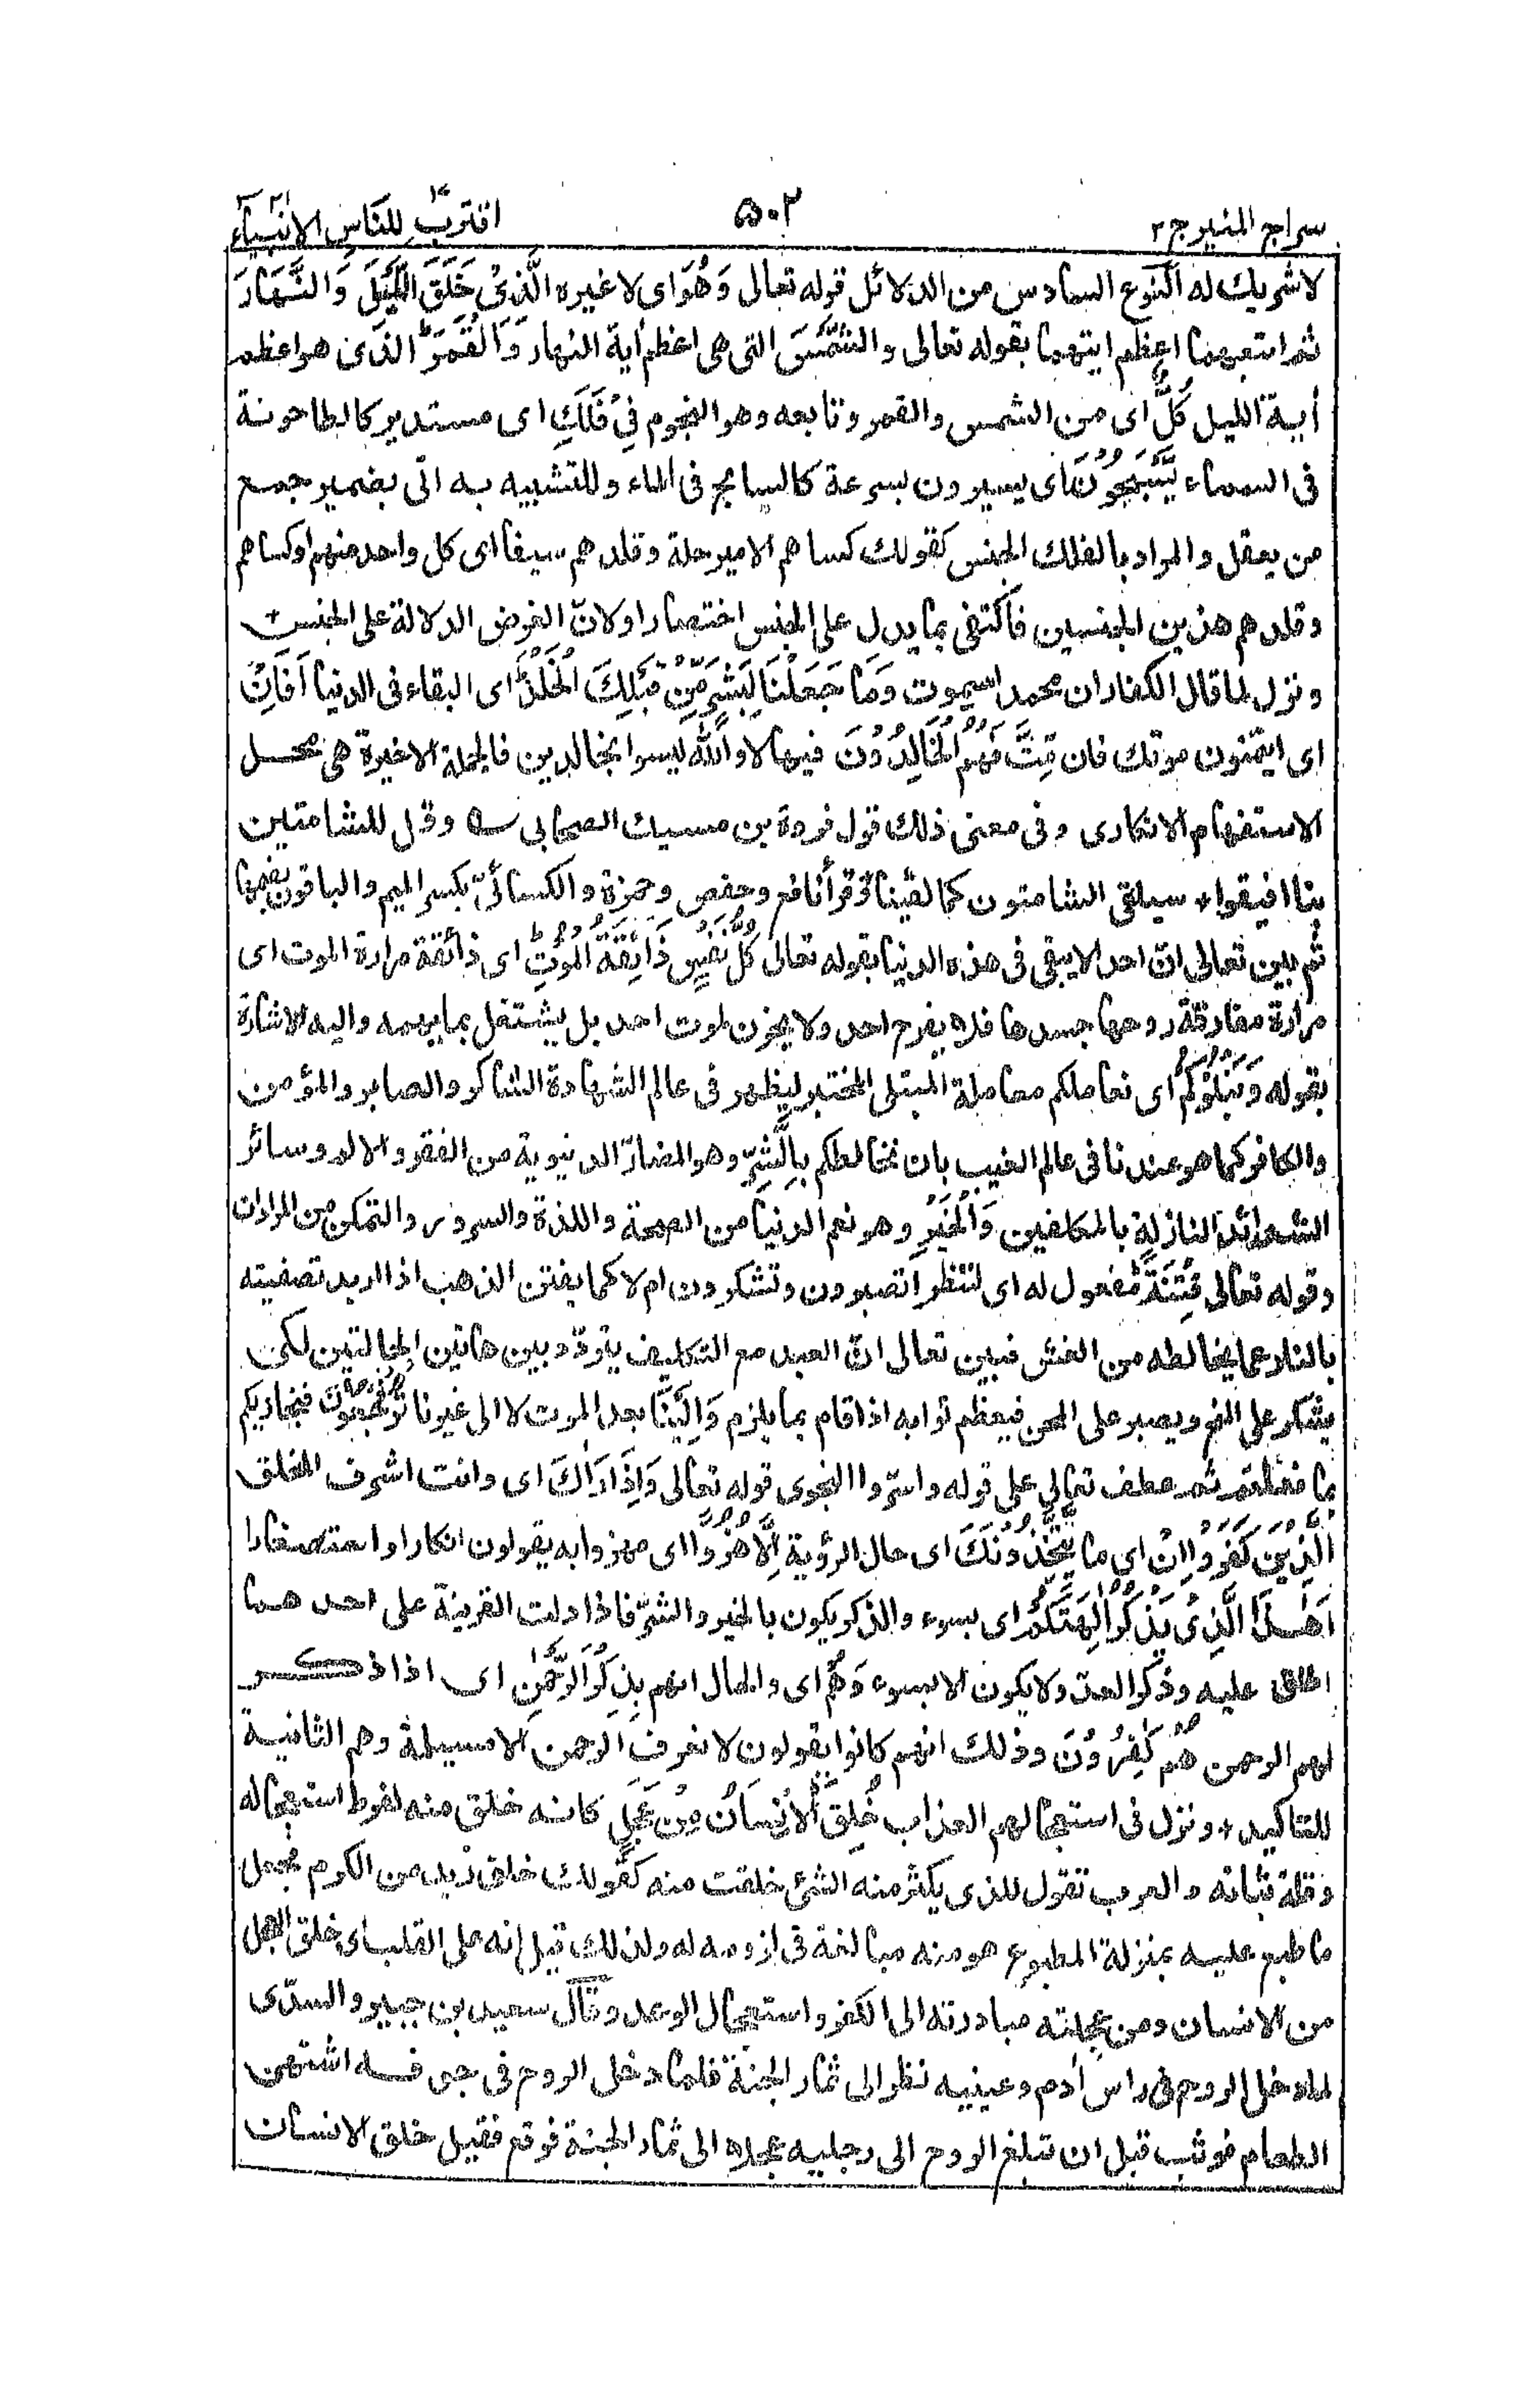 سراج المنير ج٢
٥٠٢
اقترب للناس ١٧ الانبياء ٢١
لاشريك له النوع السادس من الدلائل قوله تعالى وَهُوَ اى لا غيره الَّذِىْ خَلَقَ الَّيْلَ وَالنَّهَارَ
ثم اتبعهما اعظم ايتهما بقوله تعالى والشَّمْسَ التى هى اعظم أية النهار وَالْقَمَرَ الذى هو اعظم
أية الليل كُلٌّ اى من الشمس والقمر وتابعه وهو النجوم فِىْ فَلَكٍ اى مستدير كالطاحونة
فى السماء يَّسْبَحُوْنَ اى يسيرون بسرعة كالسابح فى الماء وللتشبيه به اتى بضمير جمع
من يعقل والمراد بالفلك الجنس كقولك كساهم الامير حلة وقلدهم سيفا اى كل واحد منهم او كساهم
وقلدهم هذين الجنسين فاكتفى بما يدل على الجنس اختصارا ولانّ الغرض الدلالة على الجنس +
ونزل لما قال الكفار ان محمدا سيموت وَمَا جَعَلْنَا لِبَشَرٍ مِّنْ قَبْلِكَ الْخُلْدَ اى البقاء فى الدنيا اَفَائِنْ
اى ايتمنون موتك فان مِّتَّ فَهُمُ الْخَالِدُوْنَ فيها لا والله ليسوا بخالدين فالجملة الاخيرة هى محل
الاستفهام الانكارى وفى معنى ذلك قول فروة بن مسيك الصحابى ؎ وقل للشامتين
بنا افيقوا + سيلقى الشامتون كما لقينا وقرأ نافع وحفص وحمزة والكسائىّ بكسر الميم والباقون بضمها
ثم بين تعالى انّ احدا لا يبقى فى هذه الدنيا بقوله تعالى كُلُّ نَفْسٍ ذَائِقَةُ الْمَوْتِ اى ذائقة مرارة الموت اى
مرارة مفارقة روحها جسدها فلا يفرح احد ولا يحزن لموت احد بل يشتغل بما يهمه واليه الاشارة
بقوله وَنَبْلُوْكُمْ اى نعاملكم معاملة المبتلى المختبر ليظهر فى عالم الشهادة الشاكر والصابر والمؤمن
والكافر كما هو عندنا فى عالم الغيب بان نخالطكم بِالشَّرِّ وهو المضارّ الدنيوية من الفقر والالم وسائر
الشدائد النازلة بالمكلفين وَالْخَيْرِ وهو نعم الدنيا من الصحة واللذة والسرور والتمكن من المرادات
وقوله تعالى فِتْنَةً مفعول له اى لننظر اتصبرون وتشكرون ام لا كما يفتن الذهب اذا اريد تصفيته
بالنار عما يخالطه من الغش فبين تعالى انّ العبد مع التكليف يتردّد بين هاتين الحالتين لكى
يشكر على النعم ويصبر على المحن فيعظم ثوابه اذا قام بما يلزم وَاِلَيْنَا بعد الموت لا الى غيرنا تُرْجَعُوْنَ فنجازيكم
بما فعلتم ثم عطف تعالى على قوله واسرّوا النجوى قوله تعالى وَاِذَا رَاٰكَ اى وانت اشرف الخلق
الَّذِيْنَ كَفَرُوْا اِنْ اى ما يَّتَّخِذُوْنَكَ اى حال الرؤية اِلَّا هُزُوًا اى مهزوا به يقولون انكارا واستصغارا
اَهٰذَا الَّذِىْ يَذْكُرُ اٰلِهَتَكُمْ اى بسوء والذكر يكون بالخير والشرّ فاذا دلت القرينة على احدهما
اطلق عليه وذكر العدوّ لا يكون الا بسوء وَهُمْ اى والحال انهم بِذِكْرِ الرَّحْمٰنِ اى اذا ذكر
لهم الرحمن هُمْ كٰفِرُوْنَ وذلك انهم كانوا يقولون لا نعرف الرحمن الا مسيلمة وهم الثانية
للتاكيد + ونزل فى استعجالهم العذاب خُلِقَ الْاِنْسَانُ مِنْ عَجَلٍ كانه خلق منه لفرط استعجاله
وقلة ثباته والعرب تقول للذى يكثر منه الشئ خلقت منه كقولك خلق زيد من الكرم فجعل
ما طبع عليه بمنزلة المطبوع هو منه مبالغة فى لزومه له ولذلك قيل انه على القلب اى خلق العجل
من الانسان ومن عجلته مبادرته الى الكفر واستعجال الوعد وقال سعيد بن جبير والسدّى
لما دخل الروح فى راس أدم وعينيه نظر الى ثمار الجنة فلما دخل الروح فى جوفه اشتهى
الطعام فوثب قبل ان تبلغ الروح الى رجليه عجلا الى ثمار الجنة فوقع فقيل خلق الانسان